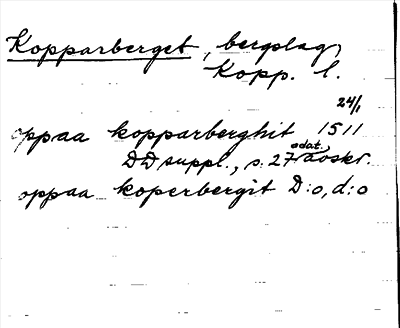 Kopparberget, bergslag,
Kopp. l.
24/1
oppaa kopparberghit 1511
odat.
DD suppl., s. 27 aoskr.
oppaa koperbergit D:o, d:o